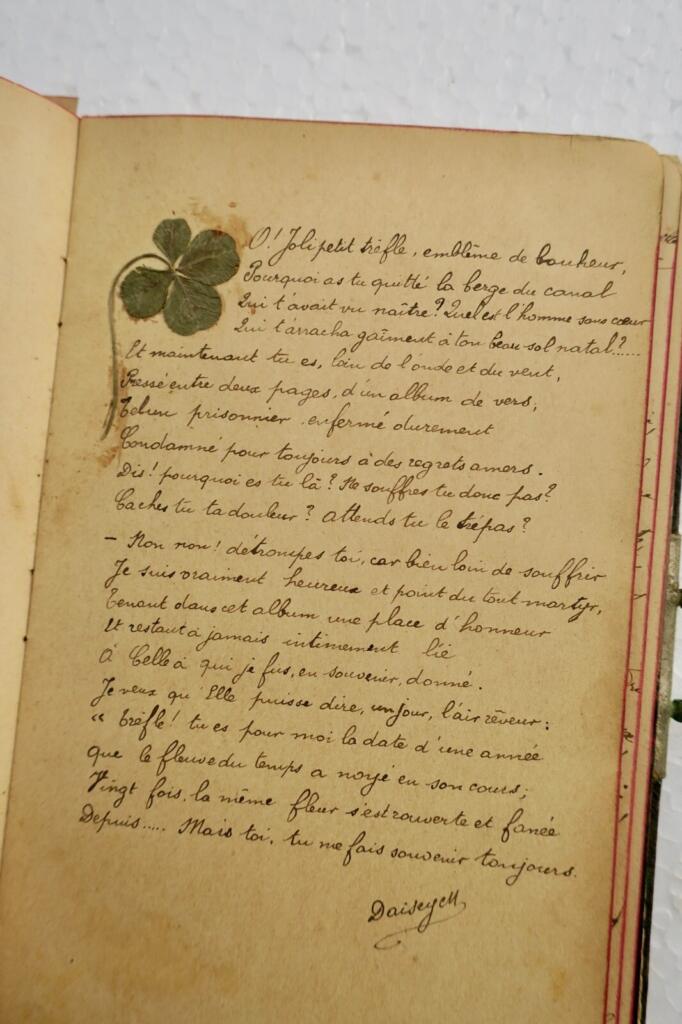 O! Joli petit trèfle, emblême de bonheur,
Pourquoi as tu quitté la berge du canal
Qui t'avait vu naître? Quel est l'homme sans cœur
Qui t'arracha gaîment à ton beau sol natal?......
Et maintenant tu es, loin de l'onde et du vent,
Pressé entre deux pages, d'un album de vers,
prisonnier, enfermé durement
Condamné pour toujours à des regrets amers.
Dis! pourquoi es tu là? Ne souffres tu donc pas?
Caches tu ta douleur? Attends tu le trépas?
– Non non! détrompes toi, car bien loin de souffrir
Je suis vraiment heureux et point du tout martyr,
Tenant dans cet album une place d'honneur
Et restant à jamais intimement lié
À Celle à qui je fus, en souvenir, donné.
Je veux qu'Elle puisse dire, un jour, l'air rêveur:
"Trèfle! tu es pour moi la date d'une année
que le fleuve du temps a noyé en son cours;
Vingt fois, la même fleur s'est rouverte et fanée
Depuis..... Mais toi, tu me fais souvenir toujours.